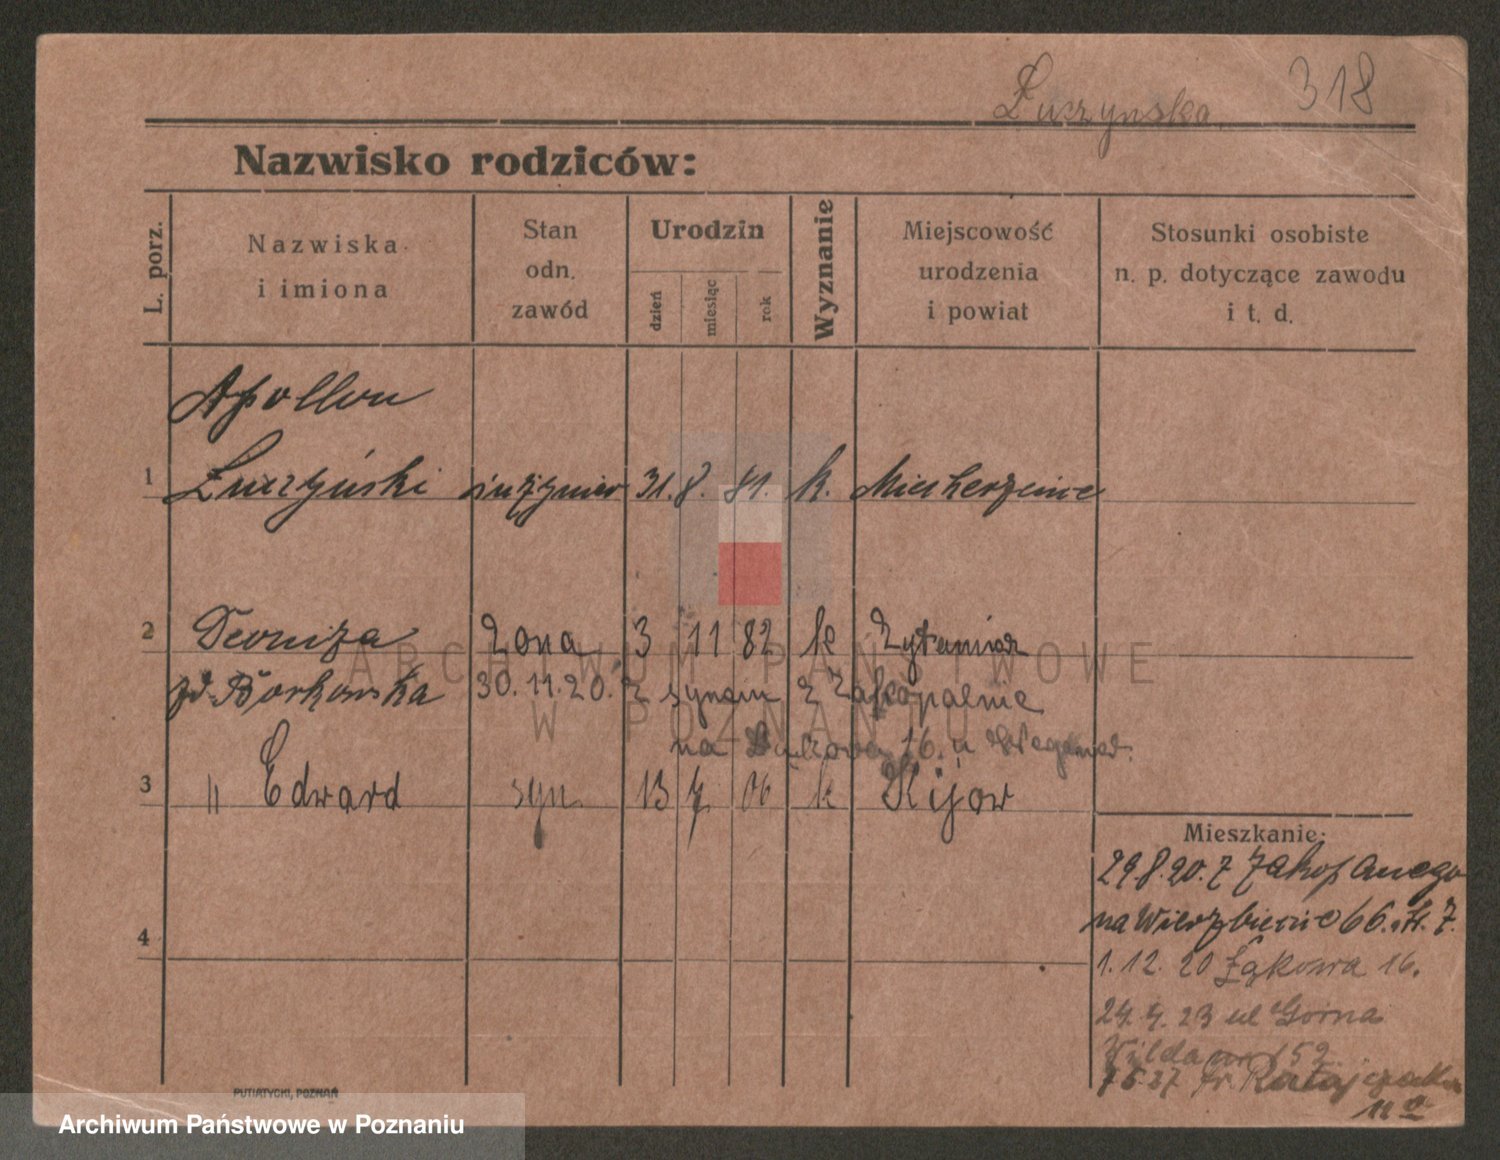 Łuczyńska 318
Nazwisko rodziców:
L. porz.
Nazwiska
i imiona
Stan
odn.
zawód
Urodzin
dzień
miesiąc
rok
Wyznanie
Miejscowość
urodzenia
i powiat
Stosunki osobiste
n. p. dotyczące zawodu
i t. d.
Apollon
1 Łuczyński inżynier 31. 8. 81. k.
2 żona 3 11 82 k
Borkowska 30.11.20. z synem z Zakopalnie
na Łąkowa 16. u
3 " Edward syn 13 06 k Kijow
Mieszkanie:
29.8.20. z Zakopanego
na Wierzbięcice 66.
4
1.12.20 Łąkowa 16.
23 ul Górna
Wilda nr 152
27 Fr. Ratajczaka
11
PUTIATYCKI, POZNAŃ
ARCHIWUM PAŃSTWOWE
W POZNANIU
Archiwum Państwowe w Poznaniu